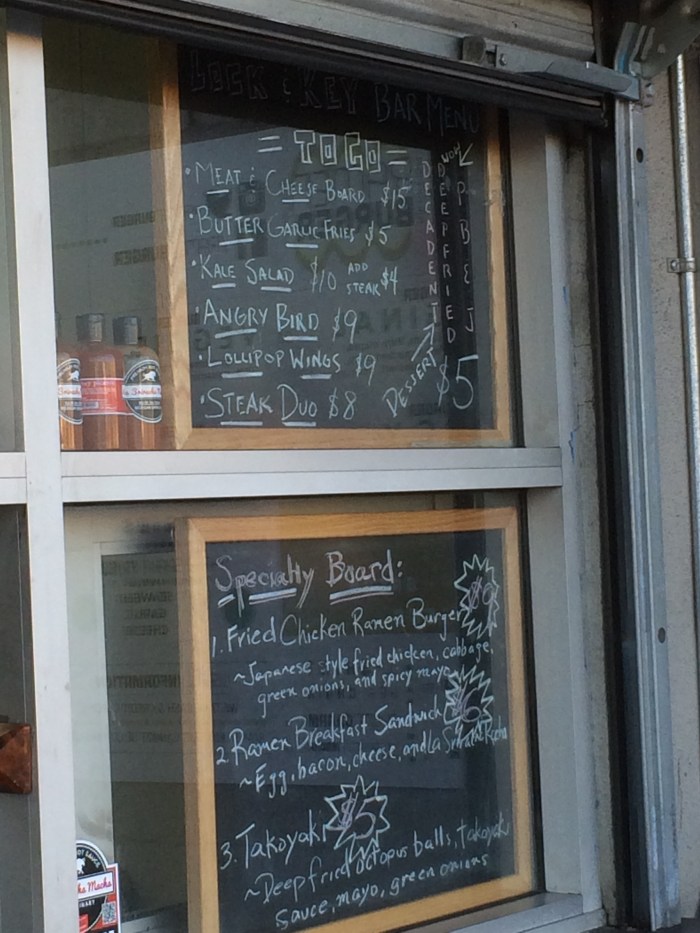 LOCK & KEY BAR MENU
= TO GO =
· MEAT & CHEESE BOARD $15
· BUTTER GARLIC FRIES $5
· KALE SALAD $10 ADD STEAK $4
· ANGRY BIRD $9
· LOLLIPOP WINGS $9
· STEAK DUO $8
WOW
DECADENT
DEEPFRIED
PB&J
DESSERT
$5
Specialty Board:
1. Fried Chicken Ramen Burger
~Japanese style fried chicken, cabbage,
green onions, and spicy mayo
2. Ramen Breakfast Sandwich
~Egg, bacon, cheese, and La
3. Takoyaki $5
~Deepfried octopus balls, takoyaki
sauce, mayo, green onions
BURGER
INFORMATION